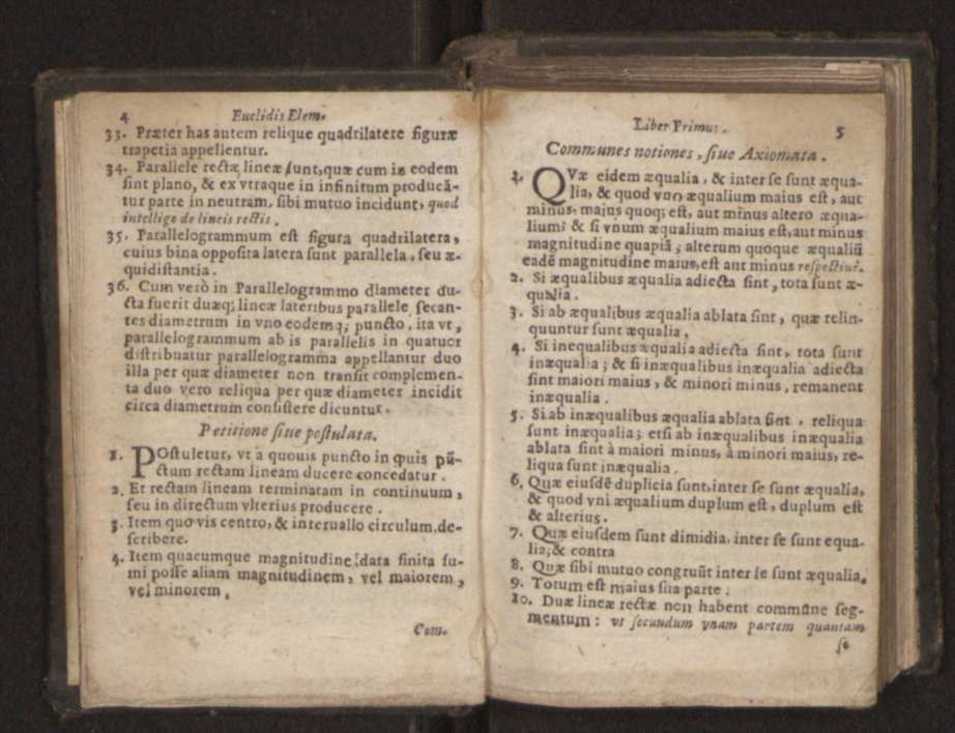 4 Euclidis Elem.
33. Præter has autem relique quadrilatere figuræ
trapetia appellentur.
34. Parallele rectæ lineæ ſunt, quæ cum in eodem
ſint plano, & ex vtraque in infinitum producā-
tur parte in neutram, ſibi mutuo incidunt, quod
intellige de lineis rectis.
35. Parallelogrammum eſt figura quadrilatera,
cuius bina oppoſita latera ſunt parallela, ſeu æ-
quidiſtantia.
36. Cum verò in Parallelogrammo diameter du-
cta fuerit duæq; lineæ lateribus parallele ſecan-
tes diametrum in vno eodemq; puncto, ita vt,
parallelogrammum ab is parallelis in quatuor
diſtribuatur parallelogramma appellantur duo
illa per quæ diameter non tranſit complemen-
ta duo vero reliqua per quæ diameter incidit
circa diametrum conſiſtere dicuntur.
Petitione ſiue poſtulata.
1. POſtuletur, vt a quouis puncto in quis pū-
ctum rectam lineam ducere concedatur.
2. Et rectam lineam terminatam in continuum,
ſeu in directum vlterius producere.
3. Item quo vis centro, & interuallo circulum de-
ſcribere.
4. Item quacumque magnitudine data finita ſu-
mi poſſe aliam magnitudinem, vel maiorem,
vel minorem.
Com.
Liber Primus. 5
Communes notiones, ſiue Axiomata.
1. QVæ eidem æqualia, & inter ſe ſunt æqua-
lia, & quod vno æqualium maius eſt, aut
minus, maius quoq; eſt, aut minus altero æqua-
lium; & ſi vnum æqualium maius eſt, aut minus
magnitudine quapiā, alterum quoque æqualiū
eadē magnitudine maius, eſt aut minus reſpectiuè.
2. Si æqualibus æqualia adiecta ſint, tota ſunt æ-
qualia.
3. Si ab æqualibus æqualia ablata ſint, quæ relin-
quuntur ſunt æqualia.
4. Si inequalibus æqualia adiecta ſint, tota ſunt
inæqualia; & ſi inæqualibus inæqualia adiecta
ſint maiori maius, & minori minus, remanent
inæqualia.
5. Si ab inæqualibus æqualia ablata ſint, reliqua
ſunt inæqualia; et ſi ab inæqualibus inæqualia
ablata ſint à maiori minus, à minori maius, re-
liqua ſunt inæqualia.
6. Quæ eiuſdē duplicia ſunt, inter ſe ſunt æqualia,
& quod vni æqualium duplum eſt, duplum eſt
& alterius.
7. Quæ eiuſdem ſunt dimidia, inter ſe ſunt equa-
lia; & contra
8. Quæ ſibi mutuo congruūt inter ſe ſunt æqualia.
9. Totum eſt maius ſua parte.
10. Duæ lineæ rectæ non habent commūne ſeg-
mentum: vt ſecundum vnam partem quantam
ſe